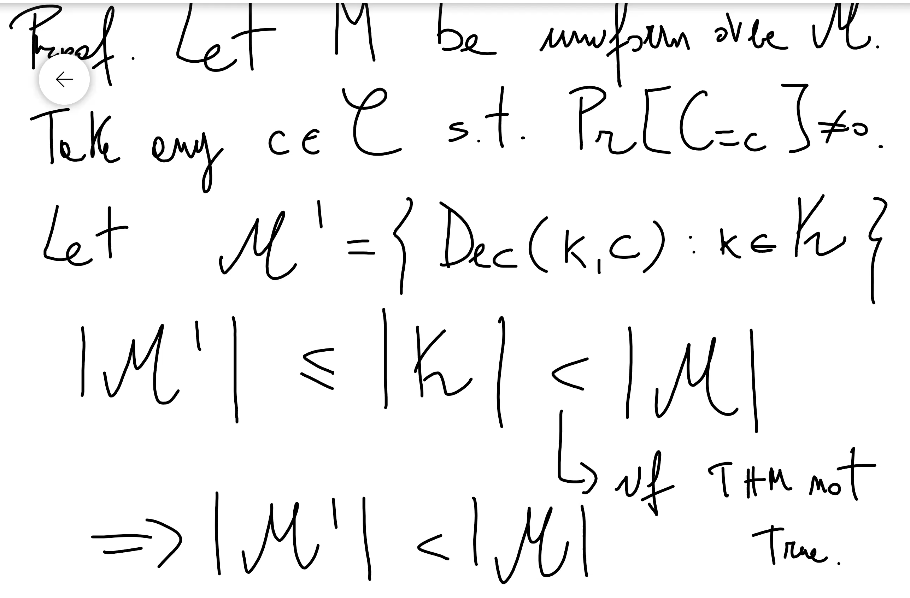 Proof. Let M be uniform over ℳ.
Take any c ∈ 𝒞 s.t. Pr[C=c] ≠ 0.
Let ℳ' = { Dec(k,c) : k ∈ 𝒦 }
|ℳ'| ≤ |𝒦| < |ℳ|
↳ if THM not
⇒ |ℳ'| < |ℳ| True.